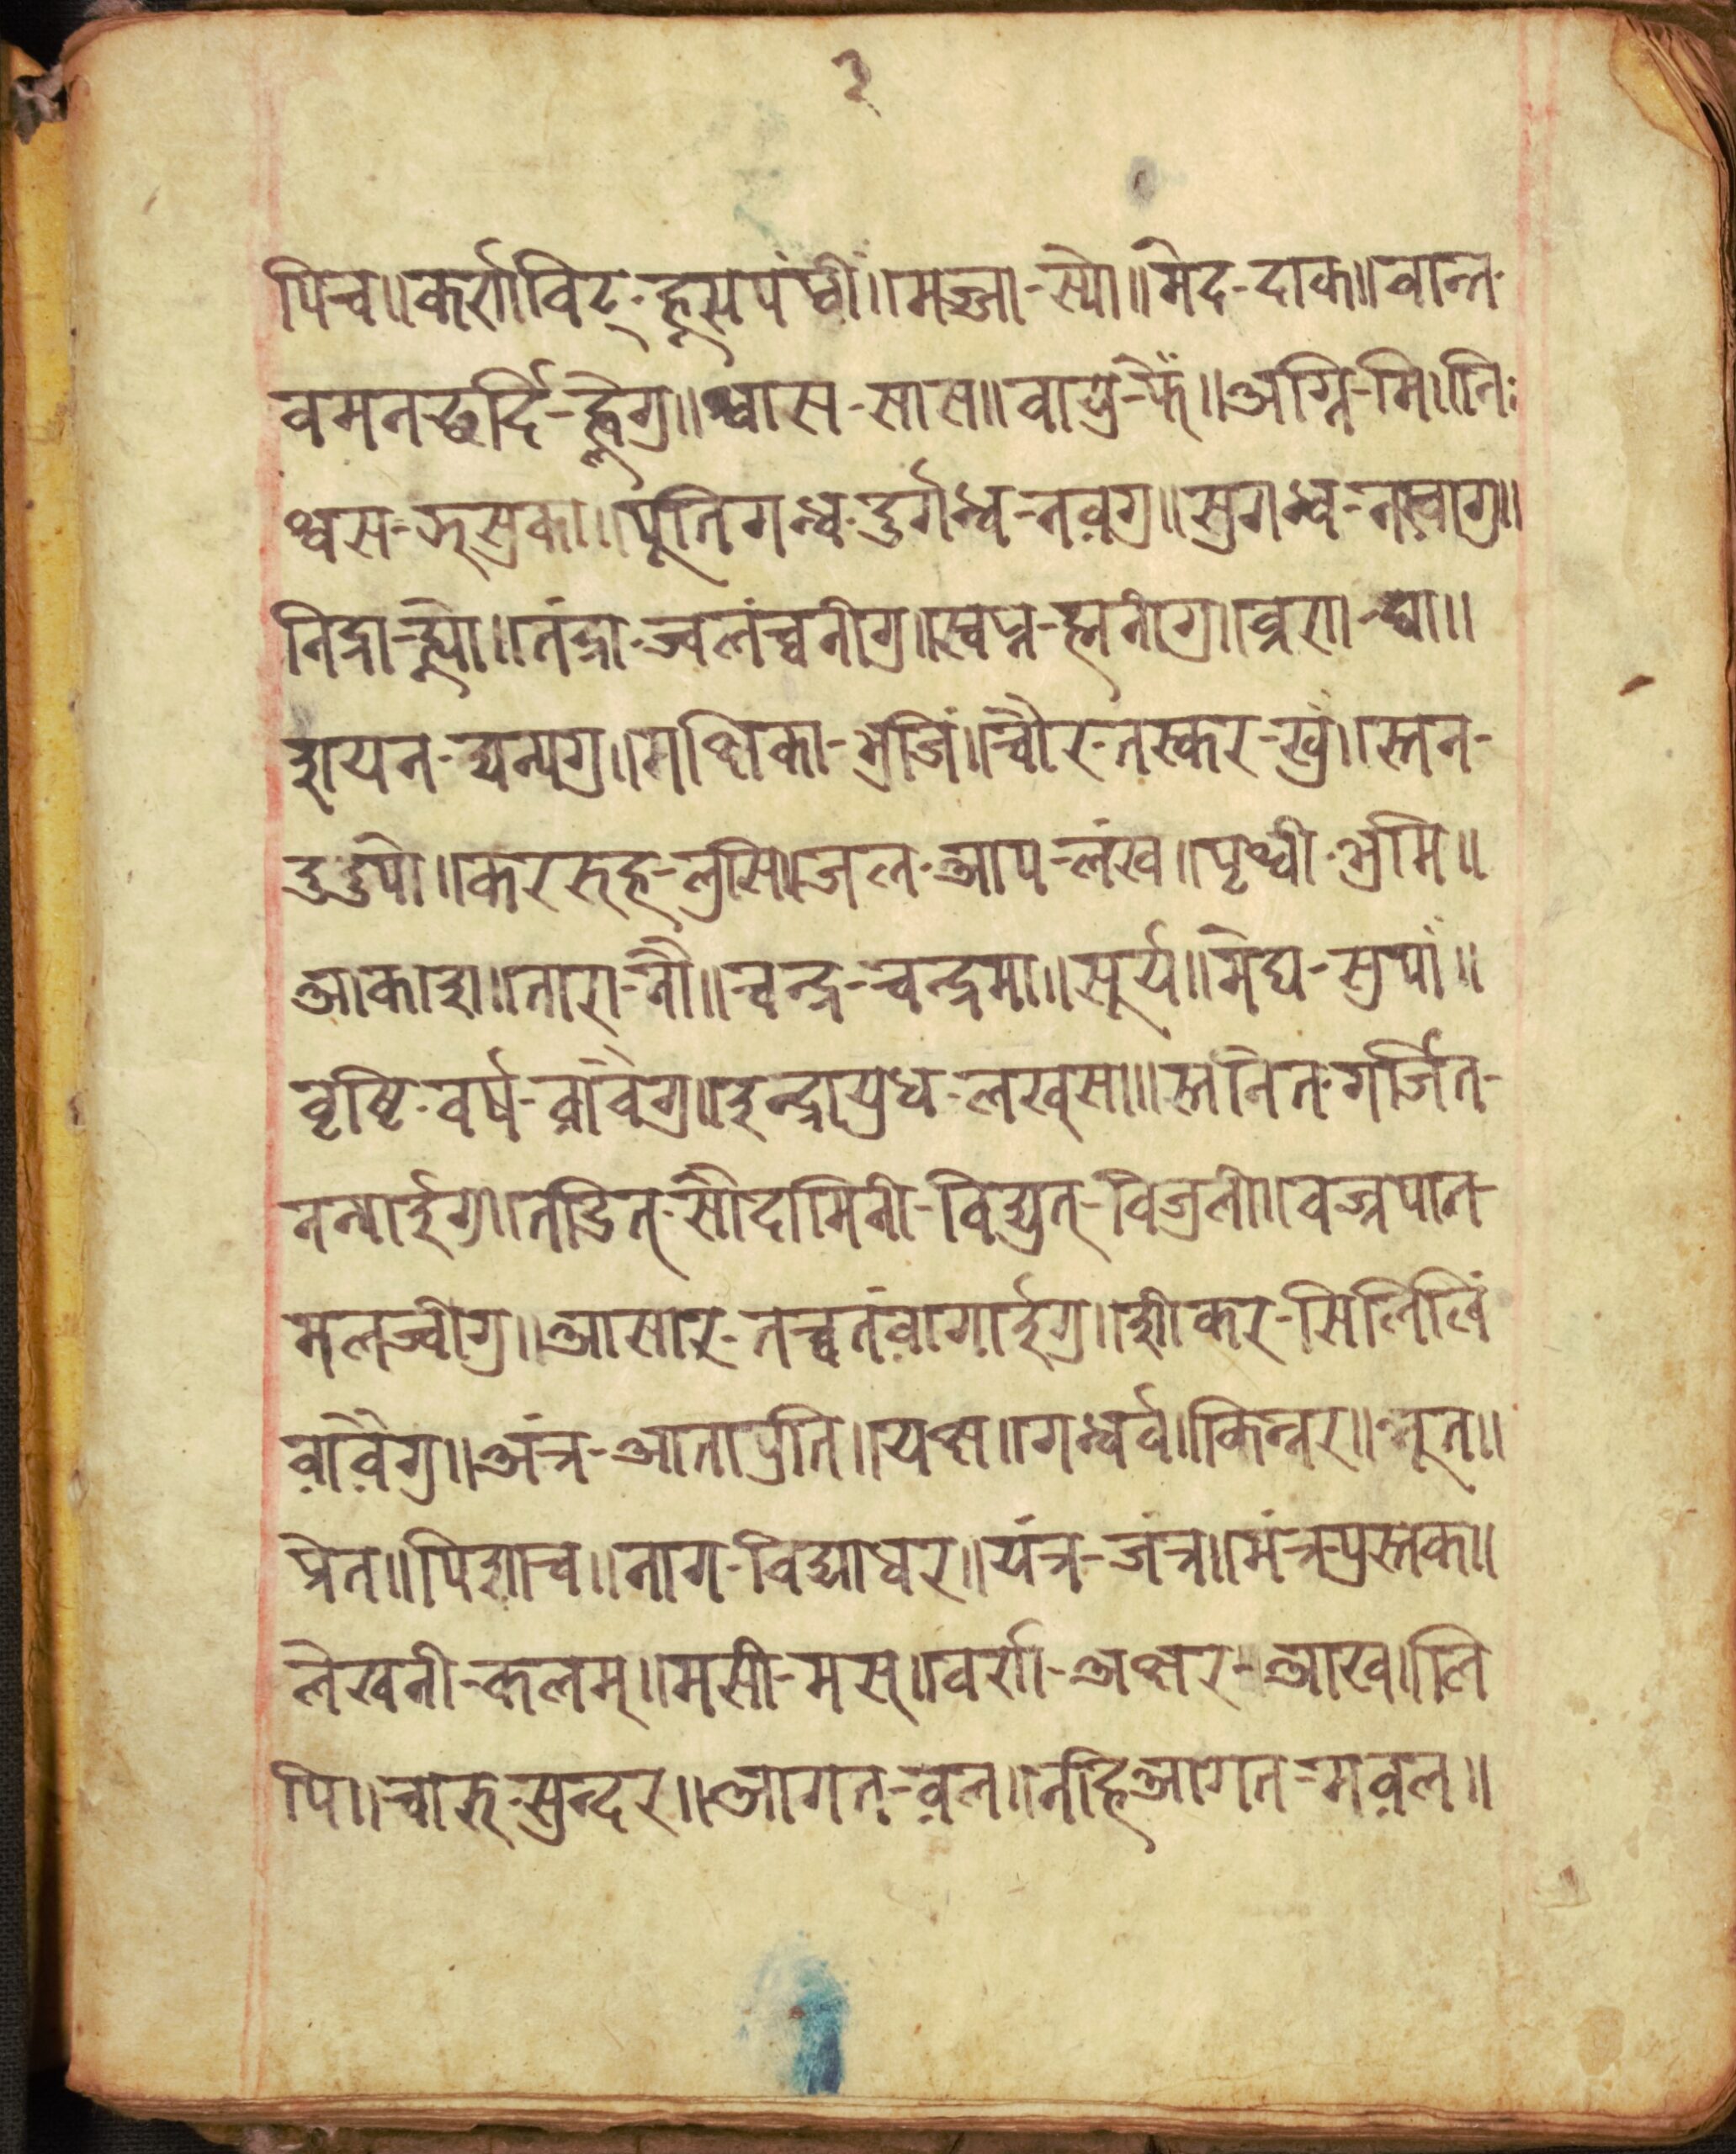 २
पिच॥कर्णविट्-ह्नसपंघ्वीं॥मज्जा-स्यो॥मेद-दाक॥वान्त-
वमनछर्दि-ह्लेगु॥श्वास-सास॥वायु-फें॥अग्नि-मि॥निः
श्वस-झुसुका॥पूतिगन्ध-दुर्गन्ध-नव़गु॥सुगन्ध-नस्वागु॥
निद्रा-ह्न्यो॥तंद्रा-ज्वलंच्वनीगु॥स्वप्न-ह्मनीगु॥व्रण-घा॥
शयन-द्यन्यगु॥मक्षिका-भुजिं॥चौर-तस्कर-खुं॥स्तन-
दुदुपो॥कररुह-लुसि॥जल-आप-लंख॥पृथ्वी-भूमि॥
आकाश॥तारा-नौ॥चन्द्र-चन्द्रमा॥सूर्य॥मेघ-सुपां॥
वृष्टि-वर्ष-व़ावैगु॥इन्द्रायुध-लख्सा॥स्तनित-गर्जित-
नन्यार्इगु॥तडित्-सौदामिनी-विद्युत्-विजुली॥वज्रपात-
मलज्वीगु॥आसार-तच्वतंव़ागार्इगु॥शीकर-सिलिलिं
व़ावैगु॥अंत्र-आतापुति॥यक्ष॥गन्धर्व॥किन्नर॥भूत॥
प्रेत॥पिशाच॥नाग-विद्याधर॥यंत्र-जंत्र॥मंत्र-पुस्तक॥
लेखनी-कलम्॥मसी-मस्॥वर्ण-अक्षर-आख॥लि
पि॥चारु-सुन्दर॥आगत-व़ल॥नहिआगत-मव़ल॥